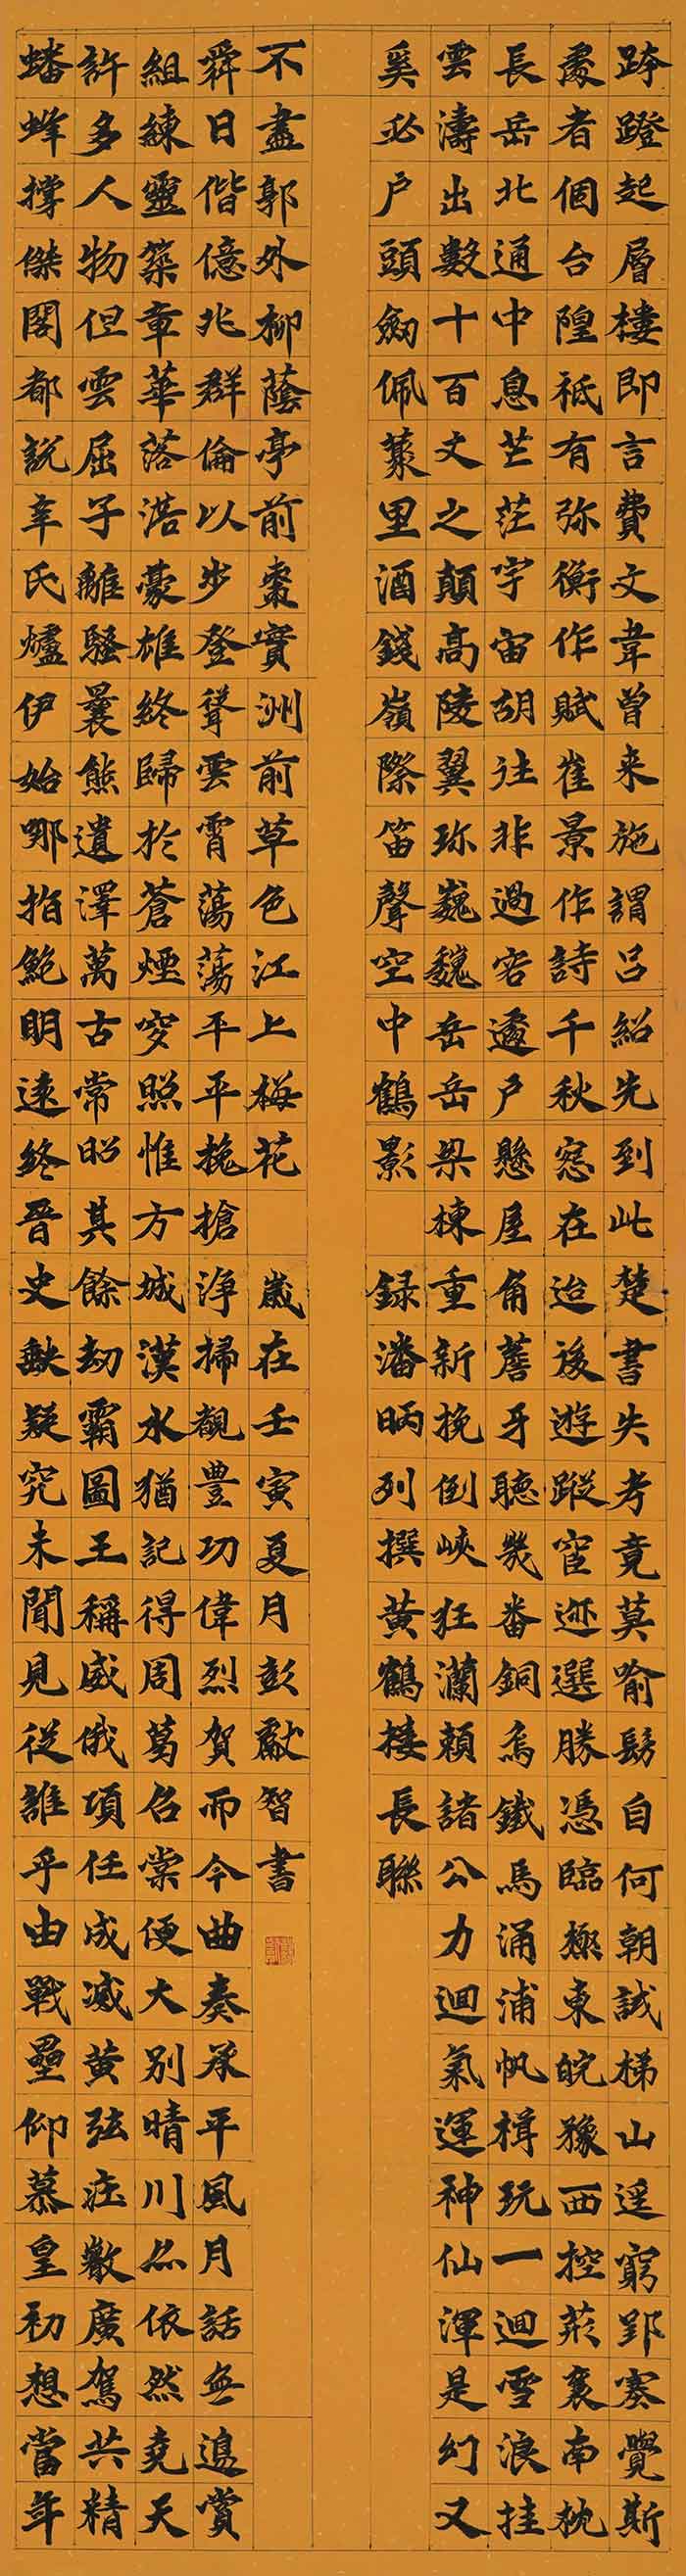 跨蹬起層樓即言費文韋曾来施謂吕紹先到此楚書失考竟莫喻髣自何朝試梯山遥窮郢塞覺斯
處者個台隍祇有弥衡作賦崔景作詩千秋窓在迨後遊蹤宦迹選勝憑臨極東皖豫西控荊襄南枕
長岳北通中息芒茫宇宙胡往非過客遽户懸屋角簷牙聽幾番銅烏鐵馬涌浦帆楫玩一迴雪浪挂
雲濤出數十百丈之顛高陵翼珎巍巍岳岳梁棟重新挽倒峽狂瀾賴諸公力迴氣運神仙渾是幻又
奚必户頭劔佩叢里酒錢嶺際笛聲空中鶴影 録潘昞列撰黄鶴楼長聯
蟠蜂撐傑閣都説辛氏爐伊始哪指鮑明遠終晉史缺疑究未聞見從誰乎由戰壘仰慕皇初想當年
許多人物但雲屈子離騷曩熊遺澤萬古常昭其餘劫霸圖王稱威俄項任成滅黄弦泩數廣駕共精
組練靈築章華落浩豪雄終歸於蒼煙突照惟方城漢水猶記得周葛召棠便大别晴川亦依然堯天
舜日偕億兆群倫以步登聳雲霄蕩蕩平平攙搶浄掃覩豊功偉烈賀而今曲奏承平風月話無邊賞
不盡郭外柳蔭亭前棗實洲前草色江上梅花 歲在壬寅夏月彭獻智書